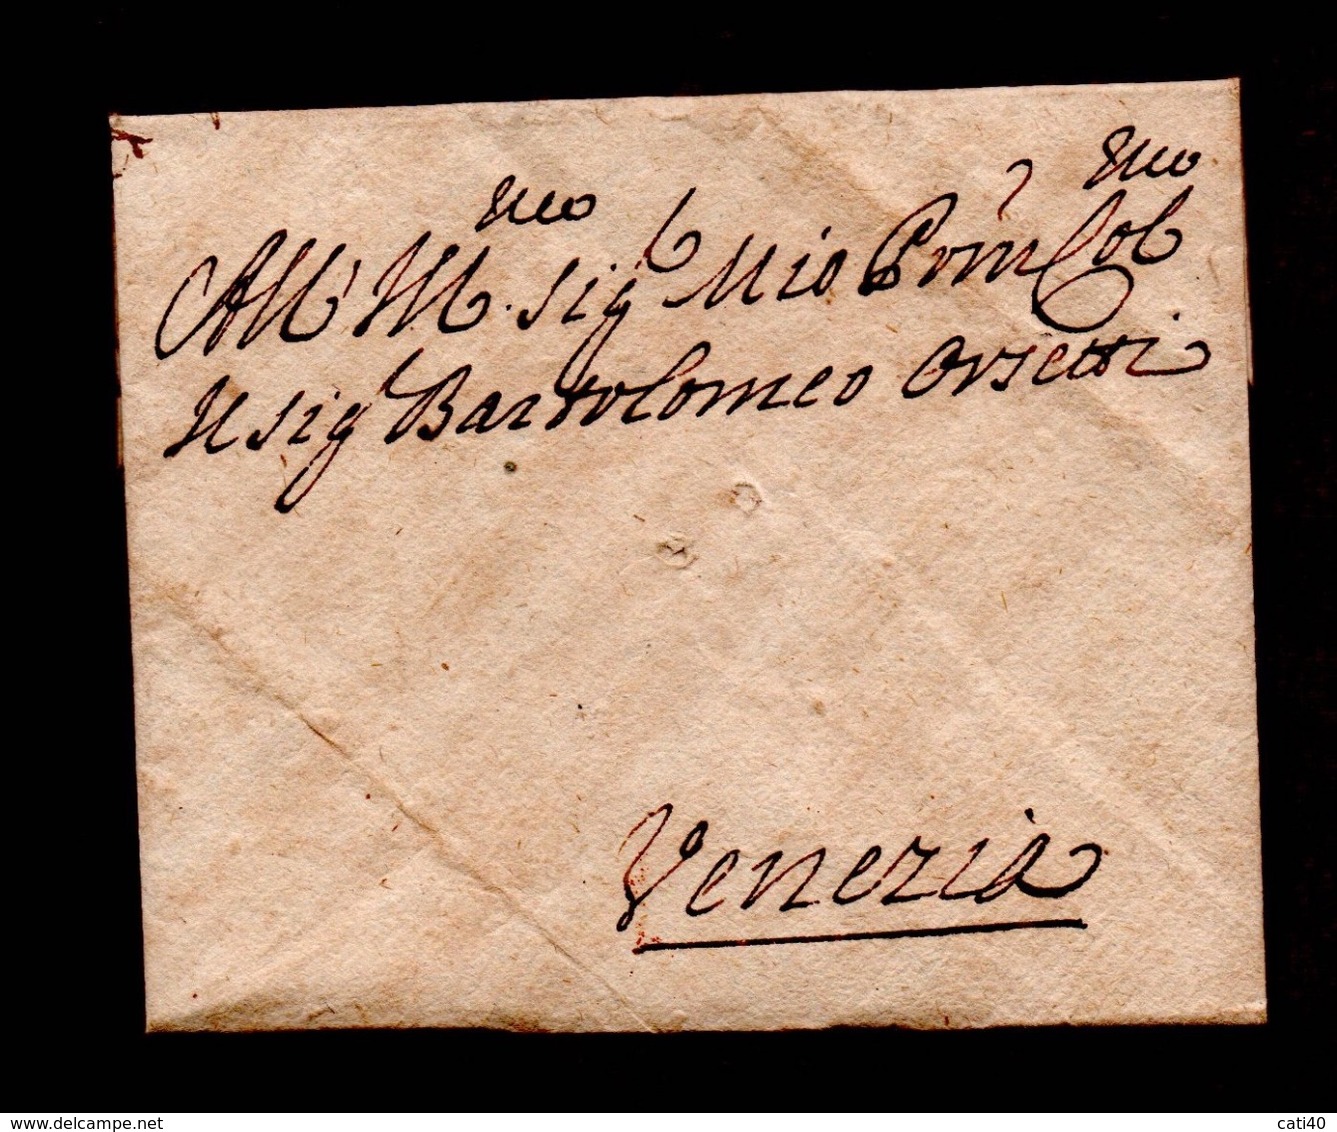 All' Ill.mo Sig.r Mio Pron Col.mo
Il Sig.r Bartolomeo Orsetti
Venezia
www.delcampe.net
cati40